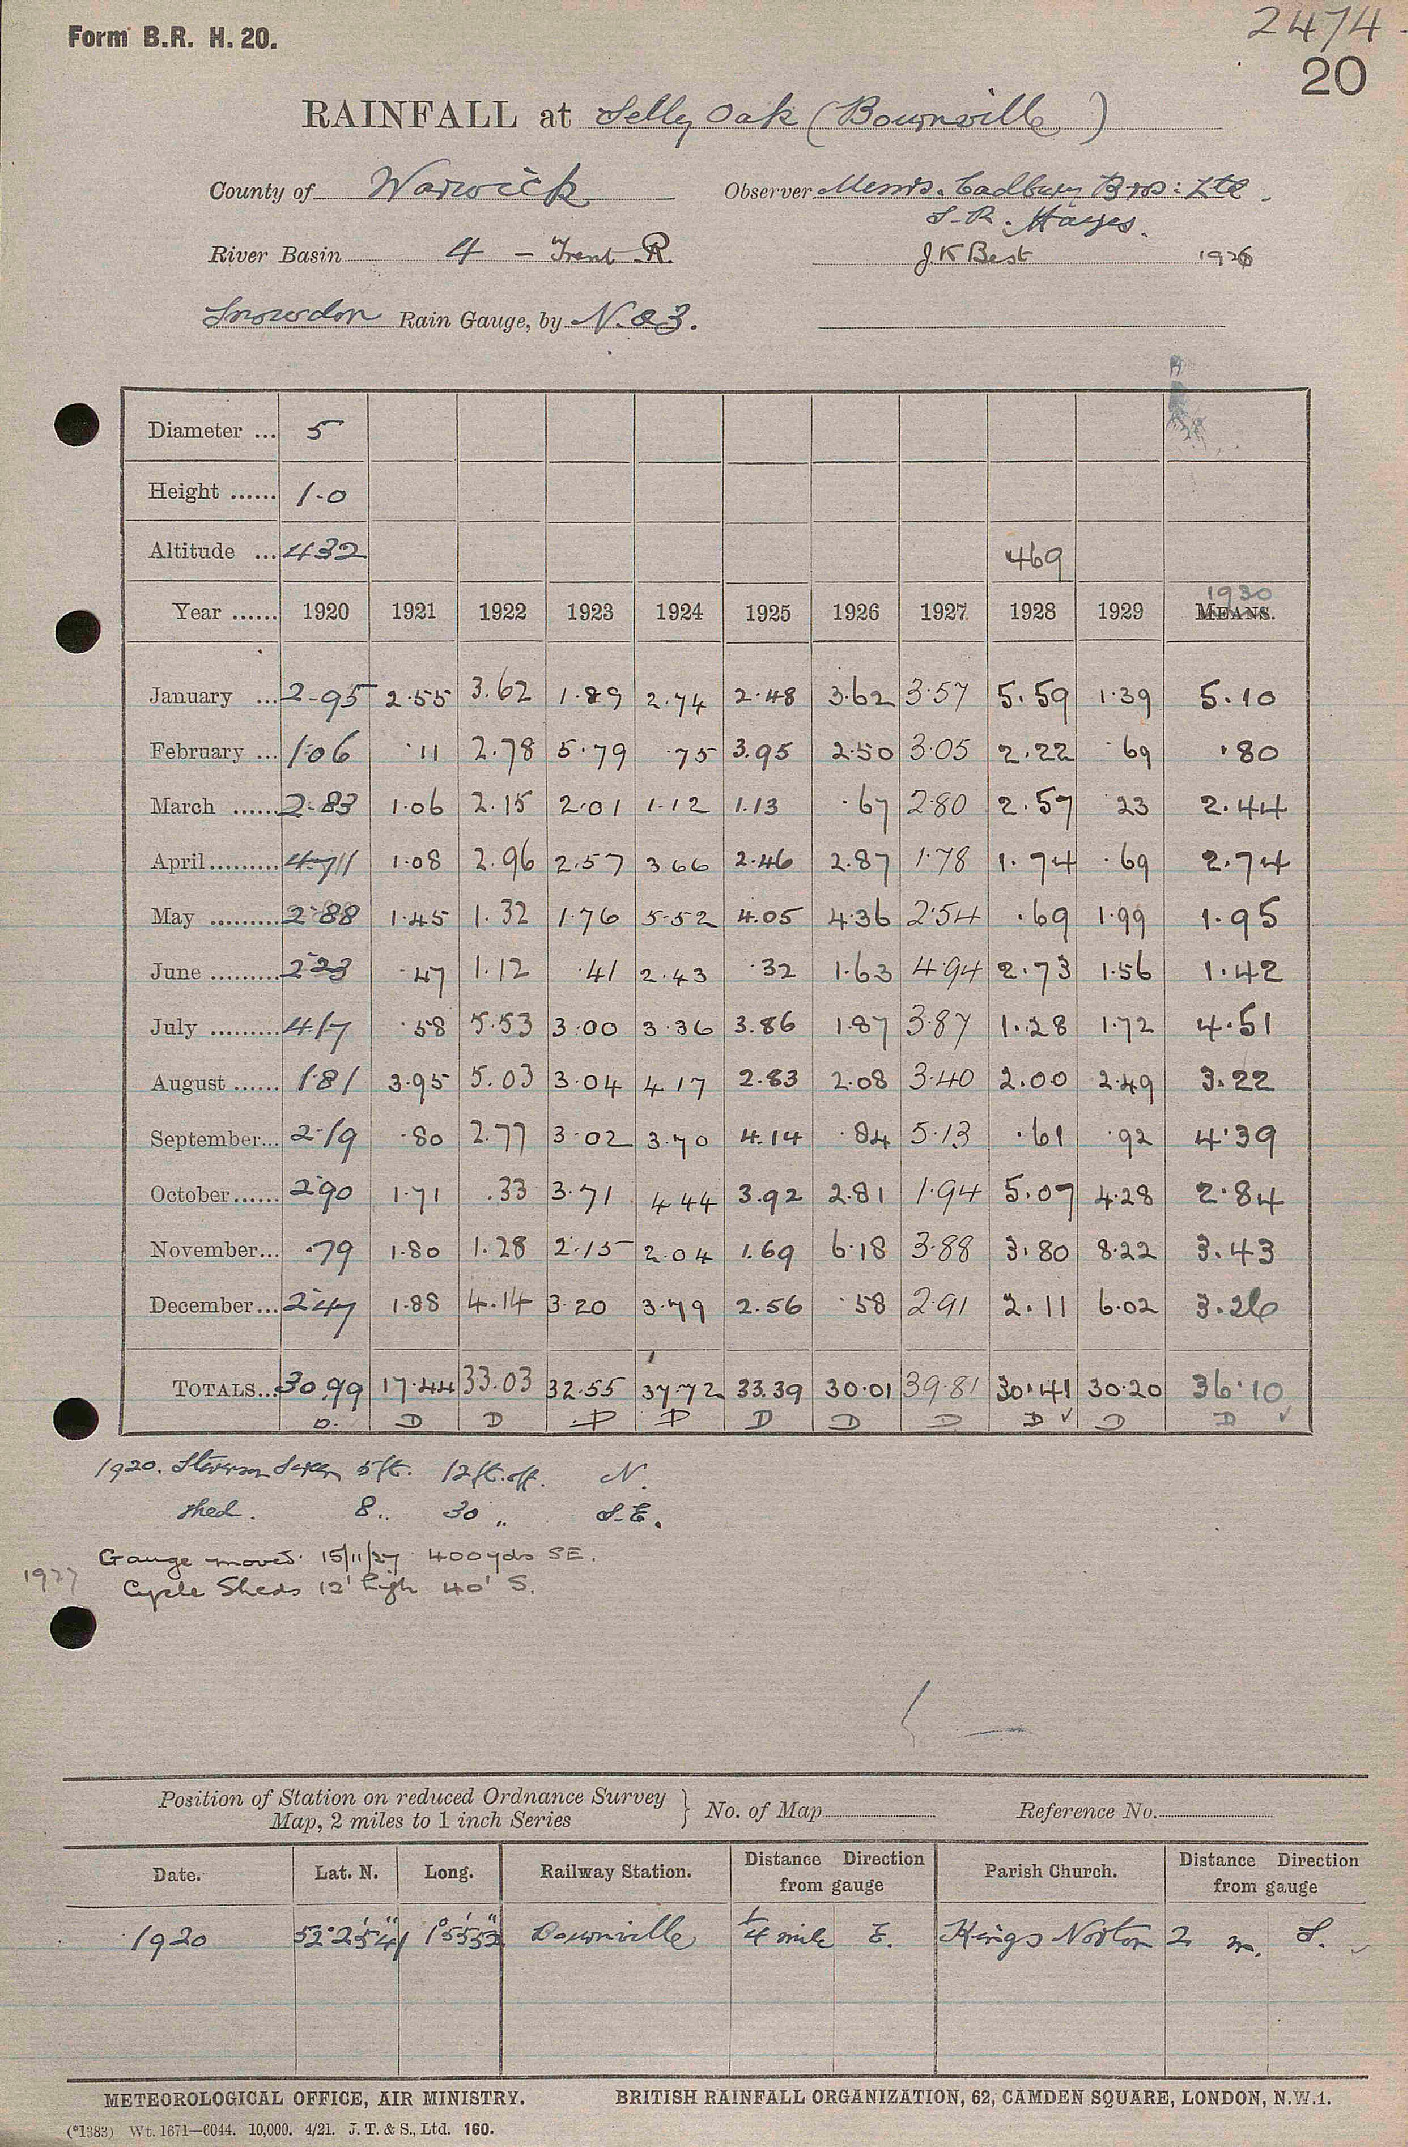 Form B.R. H. 20.
2474
20
RAINFALL at Selly Oak (Bournville)
County of Warwick Observer Messrs. Cadbury Bros: Ltd.
S. R. Hayes.
River Basin 4 - Trent R. J K Best 1926
Snowdon Rain Gauge, by N. & Z.
Diameter ... 5
Height ...... 1.0
Altitude ... 432 469
1930
Year ...... 1920 1921 1922 1923 1924 1925 1926 1927 1928 1929 MEANS.
January ... 2.95 2.55 3.62 1.89 2.74 2.48 3.62 3.57 5.59 1.39 5.10
February ... 1.06 .11 2.78 5.79 .75 3.95 2.50 3.05 2.22 .69 .80
March ...... 2.83 1.06 2.15 2.01 1.12 1.13 .67 2.80 2.57 .23 2.44
April ......... 4.71 1.08 2.96 2.57 3.66 2.46 2.87 1.78 1.74 .69 2.74
May ......... 2.88 1.45 1.32 1.76 5.52 4.05 4.36 2.54 .69 1.99 1.95
June ......... 2.23 .47 1.12 .41 2.43 .32 1.63 4.94 2.73 1.56 1.42
July ......... 4.17 .58 5.53 3.00 3.36 3.86 1.87 3.87 1.28 1.72 4.51
August ...... 1.81 3.95 5.03 3.04 4.17 2.83 2.08 3.40 2.00 2.49 3.22
September... 2.19 .80 2.77 3.02 3.70 4.14 .84 5.13 .61 .92 4.39
October...... 2.90 1.71 .33 3.71 4.44 3.92 2.81 1.94 5.07 4.28 2.84
November... .79 1.80 1.28 2.15 2.04 1.69 6.18 3.88 3.80 8.22 3.43
December... 2.47 1.88 4.14 3.20 3.79 2.56 .58 2.91 2.11 6.02 3.26
TOTALS... 30.99 17.44 33.03 32.55 37.72 33.39 30.01 39.81 30.41 30.20 36.10
D. D D D D D D D D ✓ D D ✓
1920. Stevenson Screen 5 ft. 12 ft. off. N.
shed. 8 ,, 30 ,, S.E.
Gauge moved 15/11/27 400 yds SE.
1927 Cycle Sheds 12' high 40' S.
Position of Station on reduced Ordnance Survey
Map, 2 miles to 1 inch Series } No. of Map Reference No.
Date. Lat. N. Long. Railway Station. Distance Direction from gauge Parish Church. Distance Direction from gauge
1920 52° 25' 41" 1° 55' 52" Bournville 1/4 mile E. Kings Norton 2 m. S.
METEOROLOGICAL OFFICE, AIR MINISTRY. BRITISH RAINFALL ORGANIZATION, 62, CAMDEN SQUARE, LONDON, N.W.1.
(*1383) Wt. 1671—6044. 10,000. 4/21. J. T. & S., Ltd. 160.